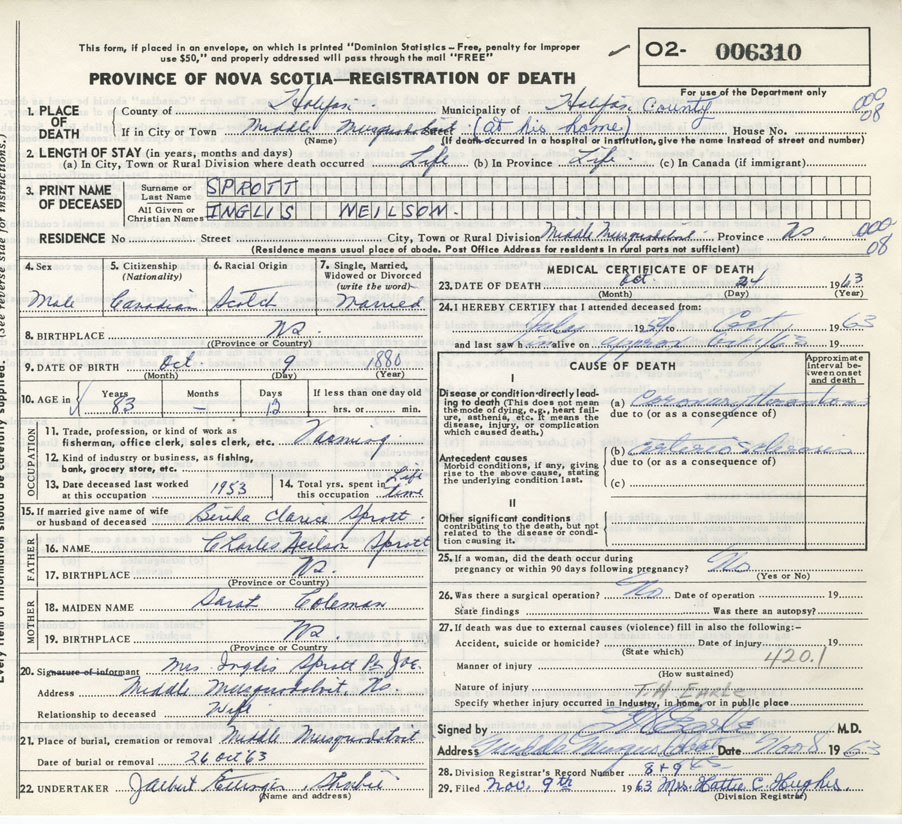 This form, if placed in an envelope, on which is printed "Dominion Statistics – Free, penalty for improper
use $50," and properly addressed will pass through the mail "FREE"
O2- 006310
PROVINCE OF NOVA SCOTIA—REGISTRATION OF DEATH
For use of the Department only
1. PLACE OF DEATH
County of Halifax Municipality of Halifax County 000 08
If in City or Town Middle Musquodoboit Street (at his home) House No.
(Name) (If death occurred in a hospital or institution, give the name instead of street and number)
2. LENGTH OF STAY (in years, months and days)
(a) In City, Town or Rural Division where death occurred Life (b) In Province Life (c) In Canada (if immigrant)
3. PRINT NAME OF DECEASED
Surname or Last Name SPROTT
All Given or Christian Names INGLIS NEILSON.
RESIDENCE No Street City, Town or Rural Division Middle Musquodoboit Province NS 000 08
(Residence means usual place of abode. Post Office Address for residents in rural parts not sufficient)
4. Sex Male
5. Citizenship (Nationality) Canadian
6. Racial Origin Scotch
7. Single, Married, Widowed or Divorced (write the word) Married
8. BIRTHPLACE NS.
(Province or Country)
9. DATE OF BIRTH Oct. 9 1880
(Month) (Day) (Year)
10. AGE in Years 83 Months – Days 12 If less than one day old hrs. or min.
OCCUPATION
11. Trade, profession, or kind of work as fisherman, office clerk, sales clerk, etc. Farming
12. Kind of industry or business, as fishing, bank, grocery store, etc.
13. Date deceased last worked at this occupation 1953
14. Total yrs. spent in this occupation Life time
15. If married give name of wife or husband of deceased Clarice Sprott
FATHER
16. NAME Charles Neilson Sprott
17. BIRTHPLACE NS.
(Province or Country)
MOTHER
18. MAIDEN NAME Sarah Coleman
19. BIRTHPLACE NS.
(Province or Country)
20. Signature of informant Mrs. Inglis Sprott Per
Address Middle Musquodoboit, NS.
Relationship to deceased Wife
21. Place of burial, cremation or removal Middle Musquodoboit
Date of burial or removal 26 Oct 63
22. UNDERTAKER Ettinger
(Name and address)
MEDICAL CERTIFICATE OF DEATH
23. DATE OF DEATH Oct. 24 1963
(Month) (Day) (Year)
24. I HEREBY CERTIFY that I attended deceased from:
19 to Oct 1963
and last saw him alive on approx Oct 19
CAUSE OF DEATH
Approximate interval between onset and death
I
Disease or condition directly leading to death (This does not mean the mode of dying, e.g., heart failure, asthenia, etc. It means the disease, injury, or complication which caused death.)
(a) Coronary
due to (or as a consequence of)
Antecedent causes
Morbid conditions, if any, giving rise to the above cause, stating the underlying condition last.
(b)
due to (or as a consequence of)
(c)
II
Other significant conditions contributing to the death, but not related to the disease or condition causing it.
25. If a woman, did the death occur during pregnancy or within 90 days following pregnancy? No
(Yes or No)
26. Was there a surgical operation? No Date of operation 19
State findings Was there an autopsy?
27. If death was due to external causes (violence) fill in also the following:–
Accident, suicide or homicide? Date of injury 19
(State which)
420.1
Manner of injury
(How sustained)
Nature of injury T.H EARLE
Specify whether injury occurred in industry, in home, or in public place
Signed by Earle M.D.
Address Middle Date Nov 8 1963
28. Division Registrar's Record Number 8+9
29. Filed Nov. 9th 1963 Mrs. Hattie C. Hughes.
(Division Registrar)
(See reverse side for instructions.)
Every item of information should be carefully supplied.